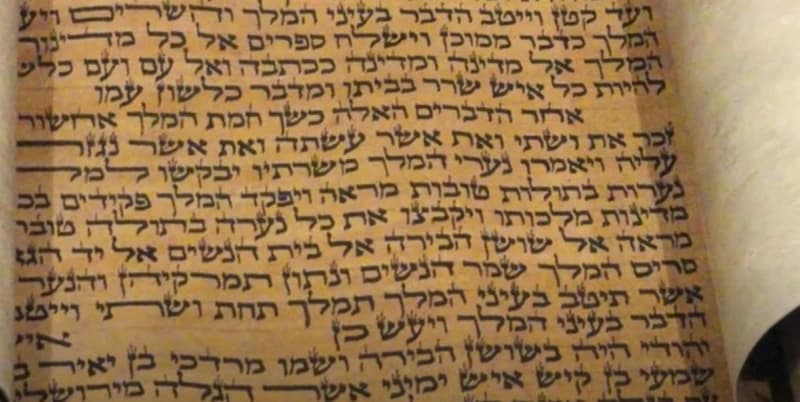 ועד קטן וייטב הדבר בעיני המלך והשרים ויע
המלך כדבר ממוכן וישלח ספרים אל כל מדינות
המלך אל מדינה ומדינה ככתבה ואל עם ועם כלש
להיות כל איש שרר בביתו ומדבר כלשון עמו
אחר הדברים האלה כשך חמת המלך אחשור
זכר את ושתי ואת אשר עשתה ואת אשר נגזר
עליה ויאמרו נערי המלך משרתיו יבקשו למל
נערות בתולות טובות מראה ויפקד המלך פקידים בכ
מדינות מלכותו ויקבצו את כל נערה בתולה טוב
מראה אל שושן הבירה אל בית הנשים אל יד הגא
סריס המלך שמר הנשים ונתון תמרקיהן והנער
אשר תיטב בעיני המלך תמלך תחת ושתי וייט
הדבר בעיני המלך ויעש כן אי
יהודי היה בשושן הבירה ושמו מרדכי בן יאיר ב
שמעי בן קיש איש ימיני אשר הגלה מירושלי